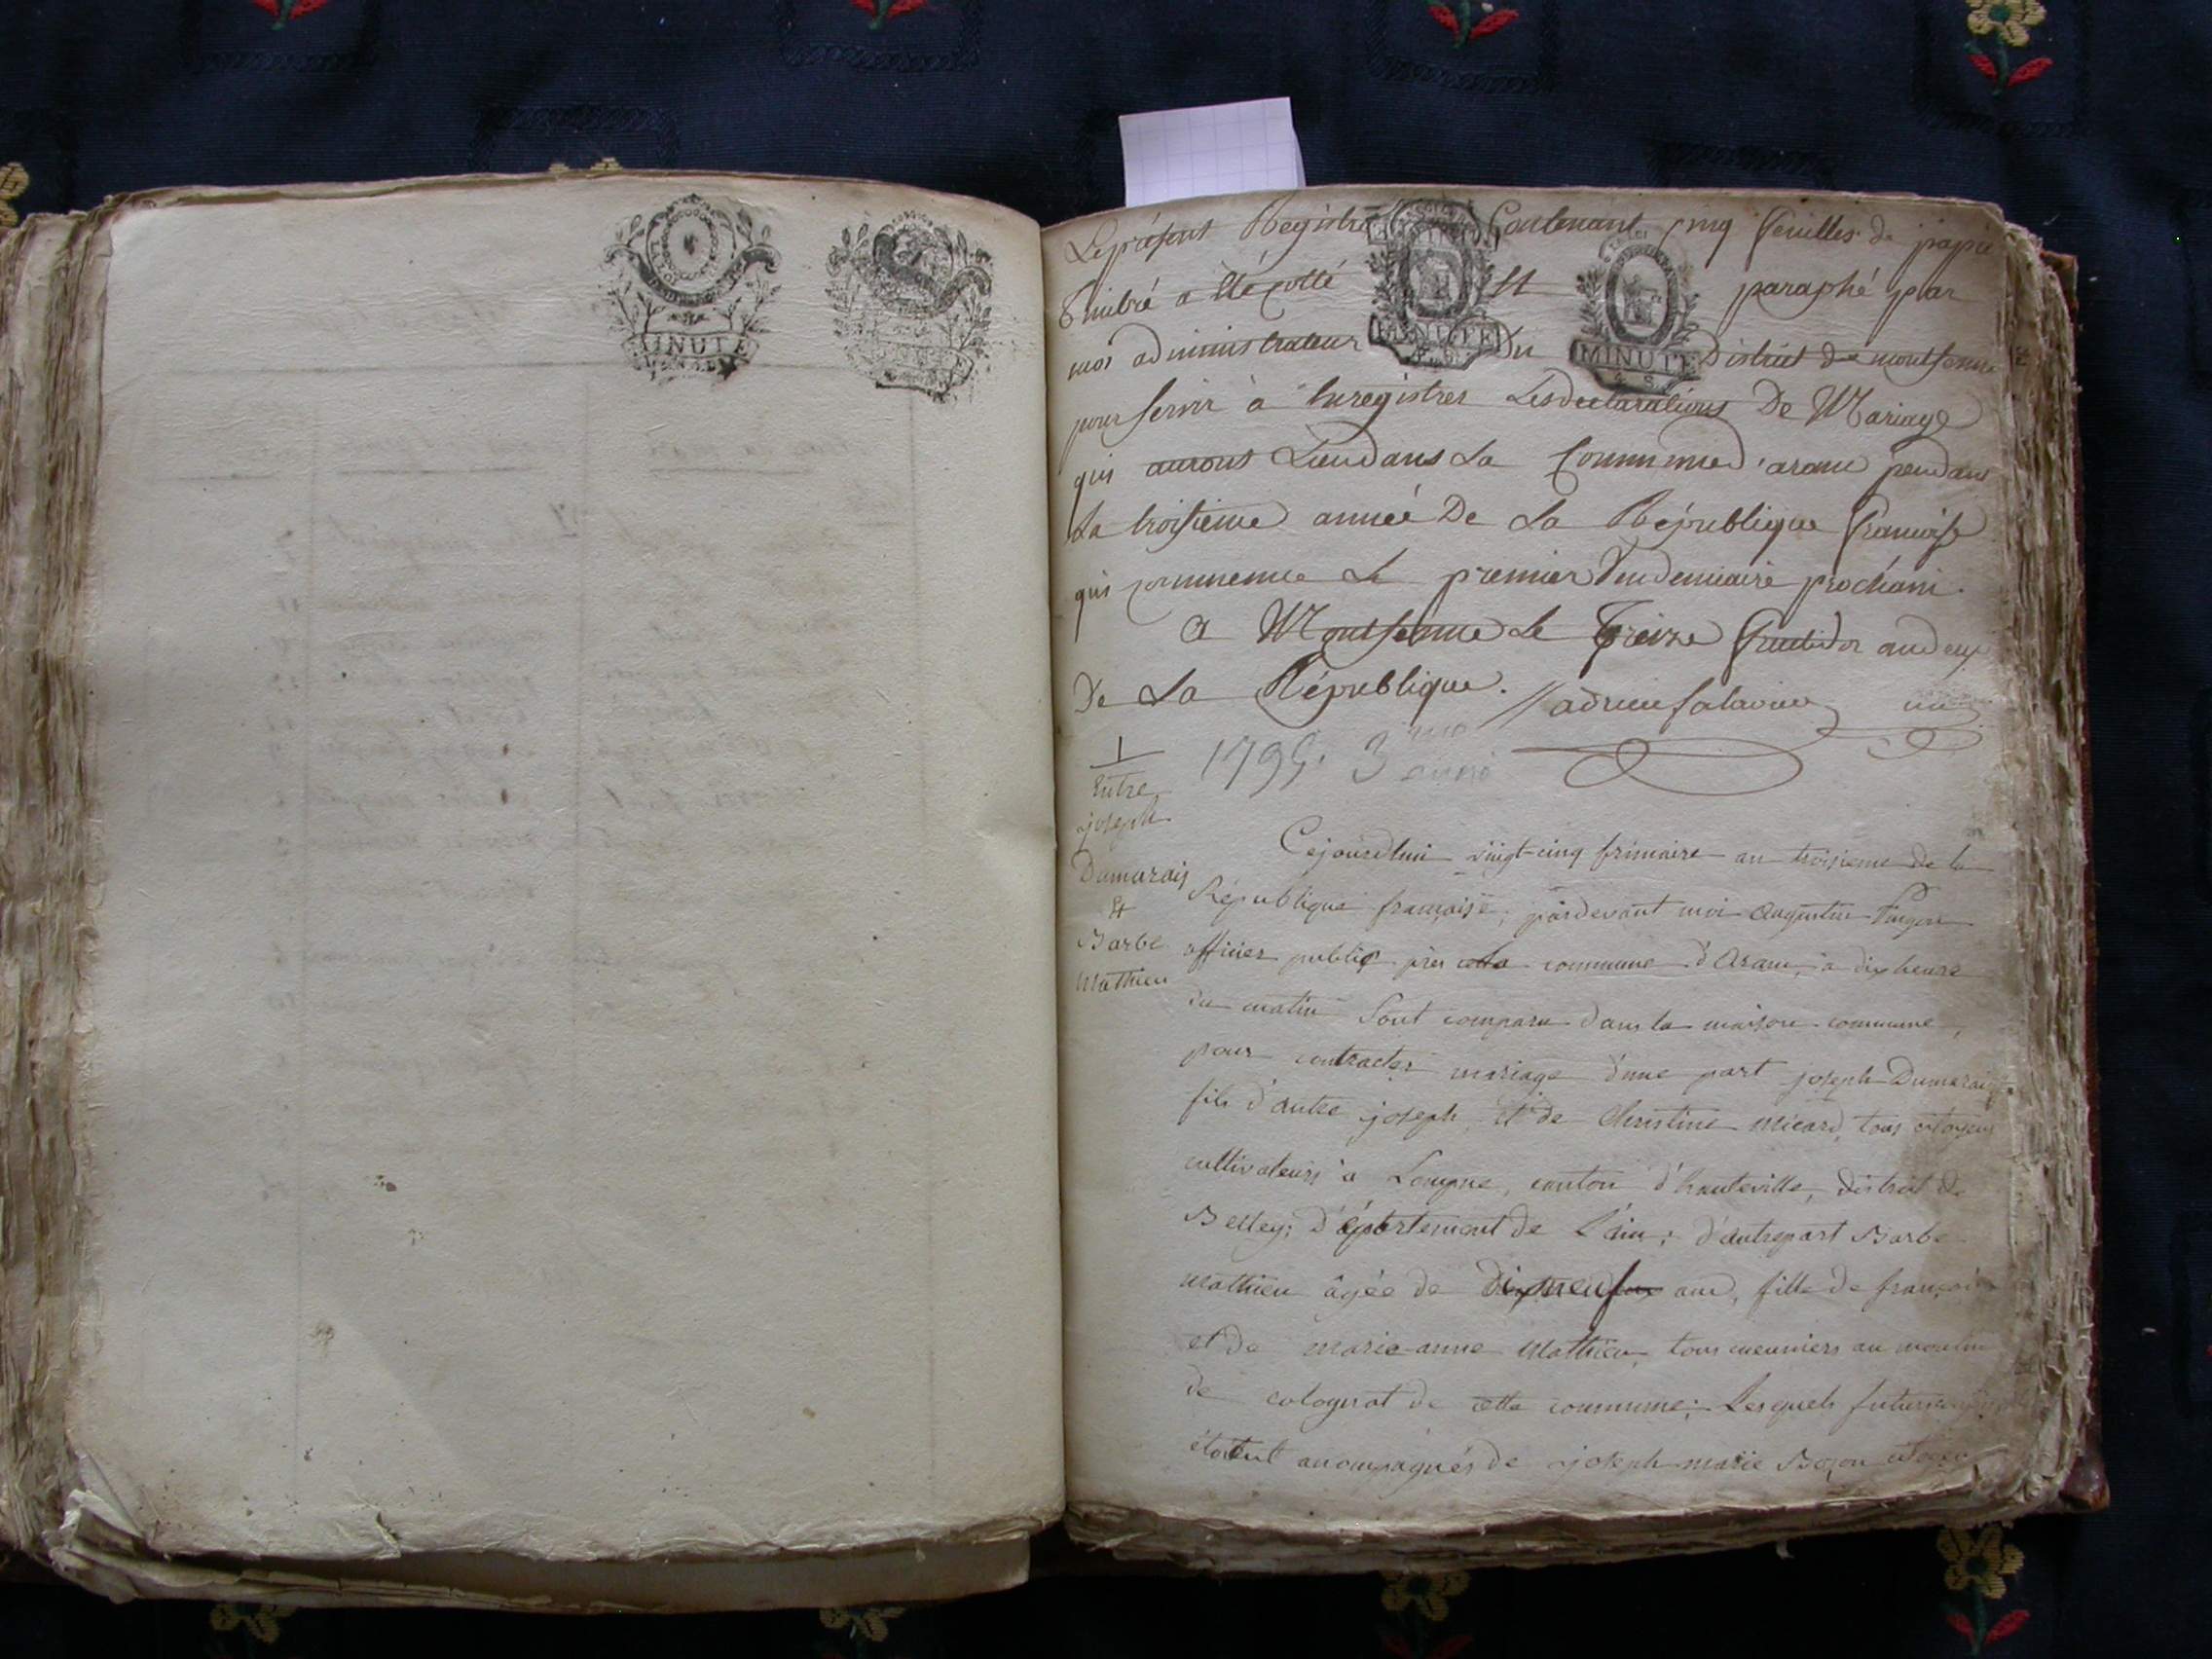 MINUTE
Le présent Registre Contenant cinq feuilles de papie
Timbré a été cotté et paraphé par
MINUTE
MINUTE
moi administrateur Du District de montferme
pour servir à Enregistrer Les declarations De Mariage
qui auront Lieu dans La Commune d'aranc pendant
La troisieme année De La République francaise
qui commence Le premier Vendemiaire prochain.
A Montferme Le Treize fructidor an deux
De La République.
1795. 3 anné
1
Entre
joseph
Dumarais
Et
Barbe
Mathieu
Cejourdhui vingt-cinq frimaire an troisieme de la
République française, pardevant moi Augustin
officier public près la commune d'Aranc, à dix heure
du matin Sont comparu dans la maison commune,
pour contracter mariage d'une part joseph Dumarais
fils d'autre joseph, et de Christine micard, tous citoyens
cultivateurs à Lompne, canton d'hauteville, district de
Belley, Département de L'ain; d'autre part Barbe
Mathieu âgée de dixneuf ans, fille de françois
et de marie-anne Mathieu, tous meuniers au moulin
de colognat de cette commune; Lesquels futurs
étoient accompagnés de joseph marie Bozon citoyen